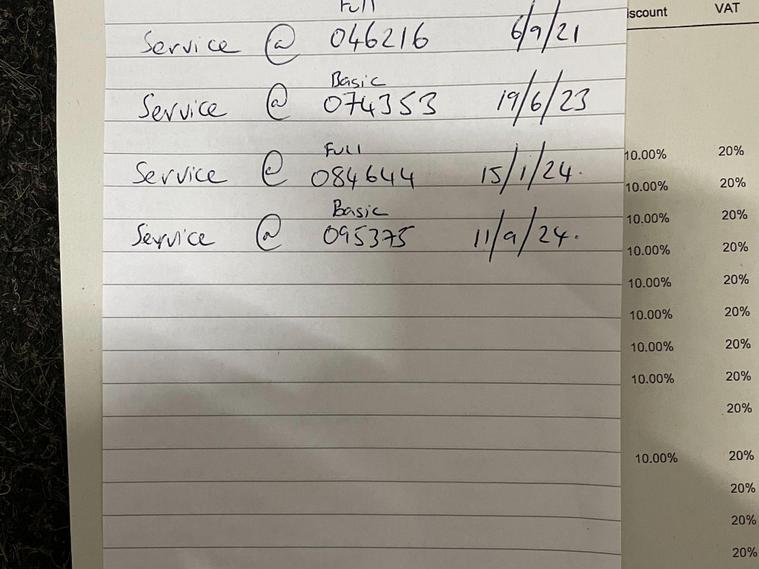 Full
Service @ 046216 6/9/21
Basic
Service @ 074353 19/6/23
Full
Service @ 084644 15/1/24.
Basic
Service @ 095375 11/9/24.
iscount VAT
10.00% 20%
10.00% 20%
10.00% 20%
10.00% 20%
10.00% 20%
10.00% 20%
10.00% 20%
10.00% 20%
20%
10.00% 20%
20%
20%
20%